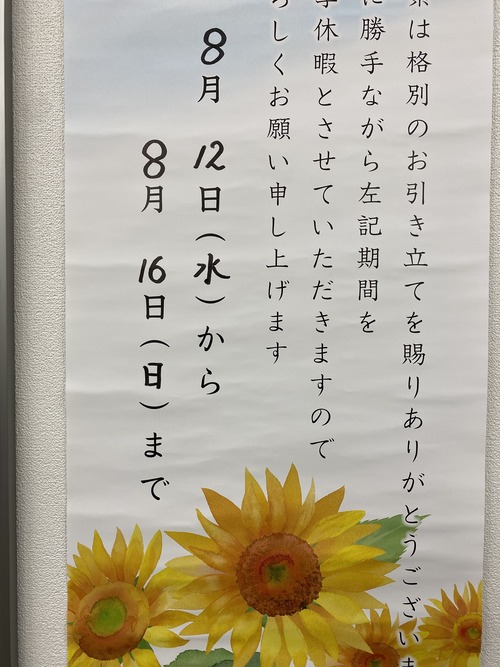 は格別のお引き立てを賜りありがとうございま
勝手ながら左記期間を
休暇とさせていただきますので
ろしくお願い申し上げます
8月12日(水)から
8月16日(日)まで